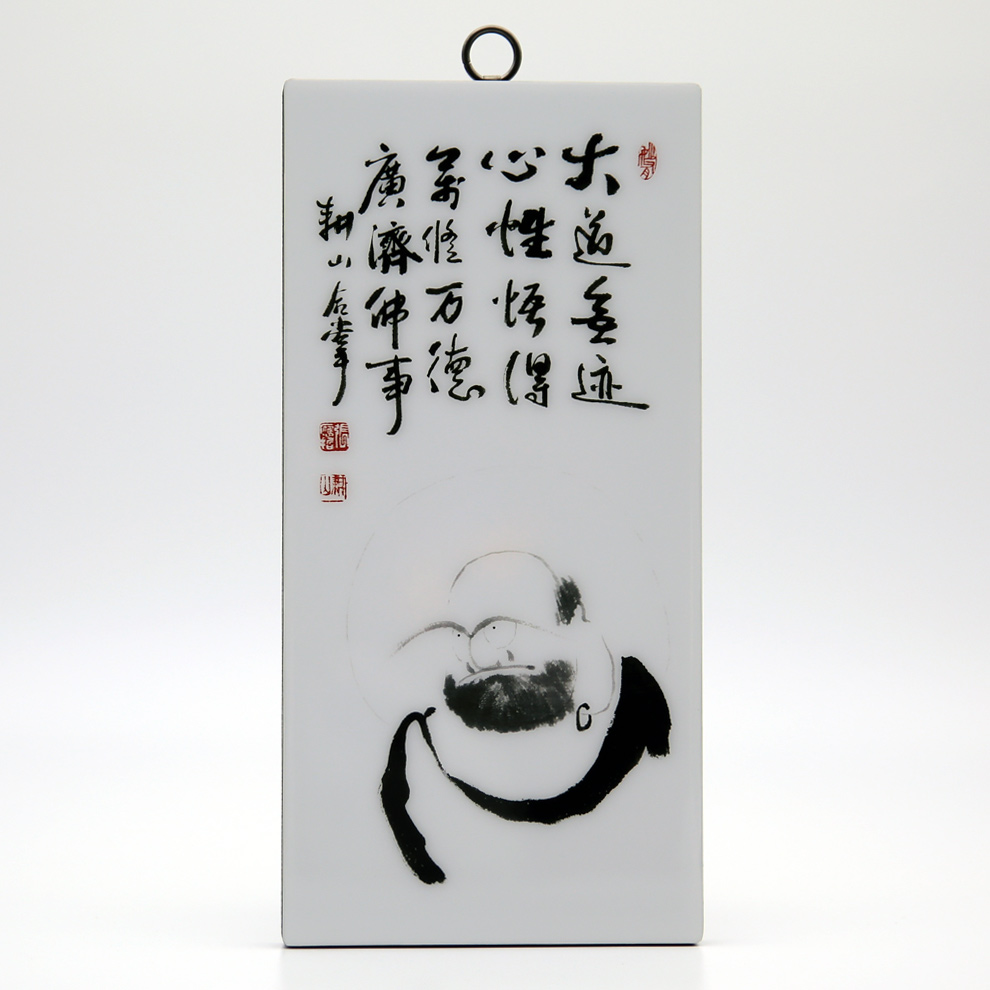 大道無迹
心性悟得
萬修万德
廣濟佛事
耕山合掌